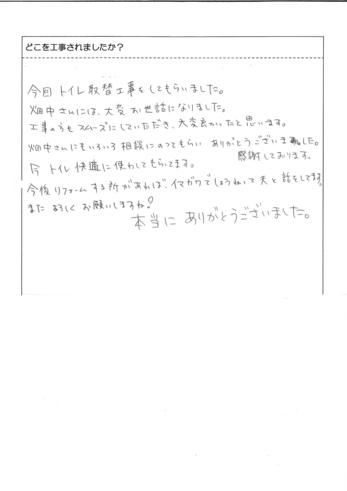 どこを工事されましたか？
今回トイレ取替工事をしてもらいました。
畑中さんには、大変お世話になりました。
工事の方もスムーズにしていただき、大変良かったと思います。
畑中さんにもいろいろ相談にのってもらい ありがとうございました。
感謝しております。
今 トイレ快適に使わしてもらってます。
今後リフォームする所があれば、イマガワでしょうねって夫と話をしてます。
また よろしくお願いしますね!
本当に ありがとうございました。